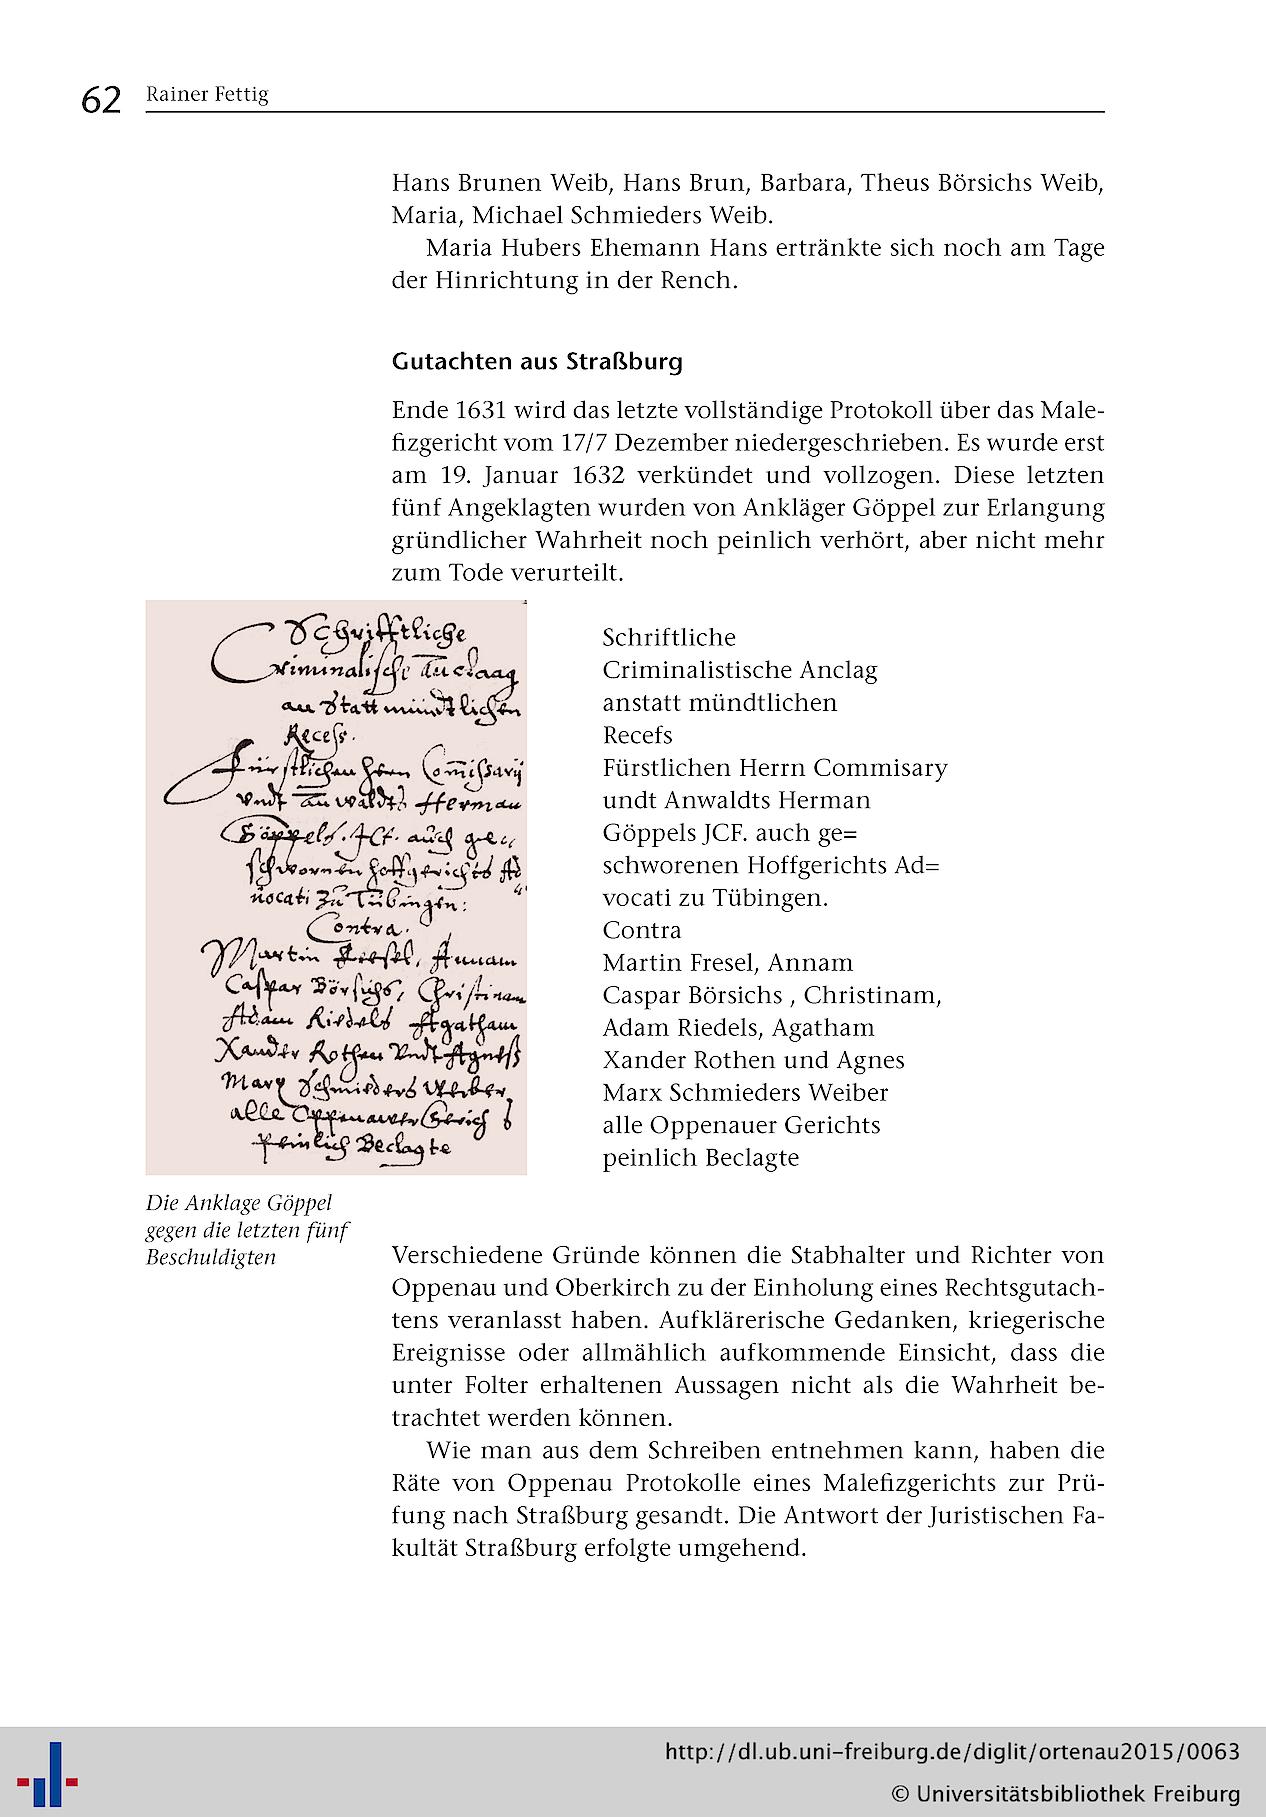 62 Rainer Fettig
Hans Brunen Weib, Hans Brun, Barbara, Theus Börsichs Weib,
Maria, Michael Schmieders Weib.
Maria Hubers Ehemann Hans ertränkte sich noch am Tage
der Hinrichtung in der Rench.
Gutachten aus Straßburg
Ende 1631 wird das letzte vollständige Protokoll über das Male-
fizgericht vom 17/7 Dezember niedergeschrieben. Es wurde erst
am 19. Januar 1632 verkündet und vollzogen. Diese letzten
fünf Angeklagten wurden von Ankläger Göppel zur Erlangung
gründlicher Wahrheit noch peinlich verhört, aber nicht mehr
zum Tode verurteilt.
Schrifftliche
Criminalische Anclaag
an Statt mündtlichen
Recess.
Fürstlichen Herrn Commissarij
Vndt Anwaldts Herman
Göppels. JCt. auch ge=
schwornen Hoffgerichts Ad
uocati zu Tübingen:
Contra.
Martin Fresel, Annam
Caspar Börsichs, Christinam
Adam Riedels Agatham
Xander Rothen Vndt Agness
Marx Schmieders Weiber,
alle Oppenawer Gerichts
Peinlich Beclagte
Schriftliche
Criminalistische Anclag
anstatt mündtlichen
Recefs
Fürstlichen Herrn Commisary
undt Anwaldts Herman
Göppels JCF. auch ge=
schworenen Hoffgerichts Ad=
vocati zu Tübingen.
Contra
Martin Fresel, Annam
Caspar Börsichs , Christinam,
Adam Riedels, Agatham
Xander Rothen und Agnes
Marx Schmieders Weiber
alle Oppenauer Gerichts
peinlich Beclagte
Die Anklage Göppel
gegen die letzten fünf
Beschuldigten
Verschiedene Gründe können die Stabhalter und Richter von
Oppenau und Oberkirch zu der Einholung eines Rechtsgutach-
tens veranlasst haben. Aufklärerische Gedanken, kriegerische
Ereignisse oder allmählich aufkommende Einsicht, dass die
unter Folter erhaltenen Aussagen nicht als die Wahrheit be-
trachtet werden können.
Wie man aus dem Schreiben entnehmen kann, haben die
Räte von Oppenau Protokolle eines Malefizgerichts zur Prü-
fung nach Straßburg gesandt. Die Antwort der Juristischen Fa-
kultät Straßburg erfolgte umgehend.
http://dl.ub.uni-freiburg.de/diglit/ortenau2015/0063
© Universitätsbibliothek Freiburg